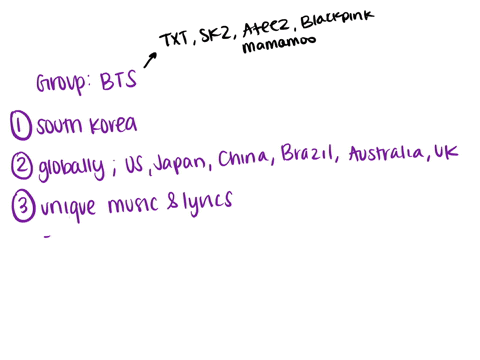 TXT, SKZ, Ateez, Blackpink
mamamoo
Group: BTS
① South Korea
② globally ; US, Japan, China, Brazil, Australia, UK
③ unique music & lyrics
-